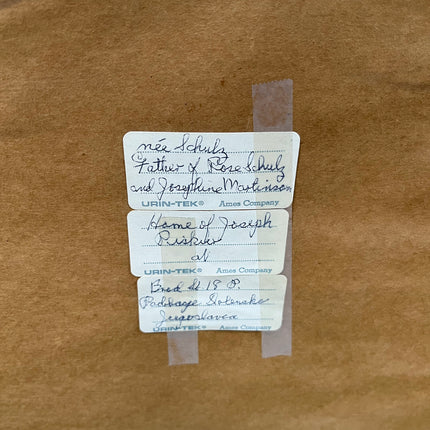 née Schulz
Father of Rose Schulz
and Josephine Martinson
URIN-TEK® Ames Company
Home of Joseph
at
URIN-TEK® Ames Company
Bred St. 18 P.
Slovenska
Jugoslavea
URIN-TEK® Ames Company